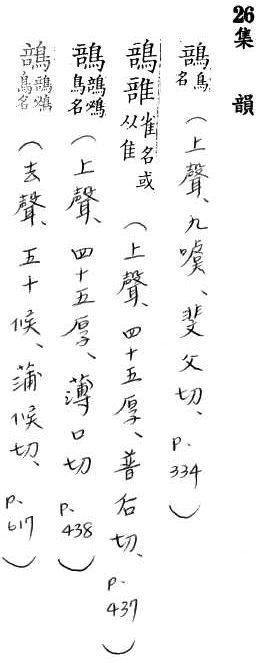 26集 韻
䳝鳥名(上聲、九噳、斐父切、p.334)
䳝雀名或从隹(上聲、四十五厚、普后切、p.437)
䳝䳝鳥名(上聲、四十五厚、薄口切 p.438)
䳝䳝鳥名(去聲、五十候、蒲候切、p.617)